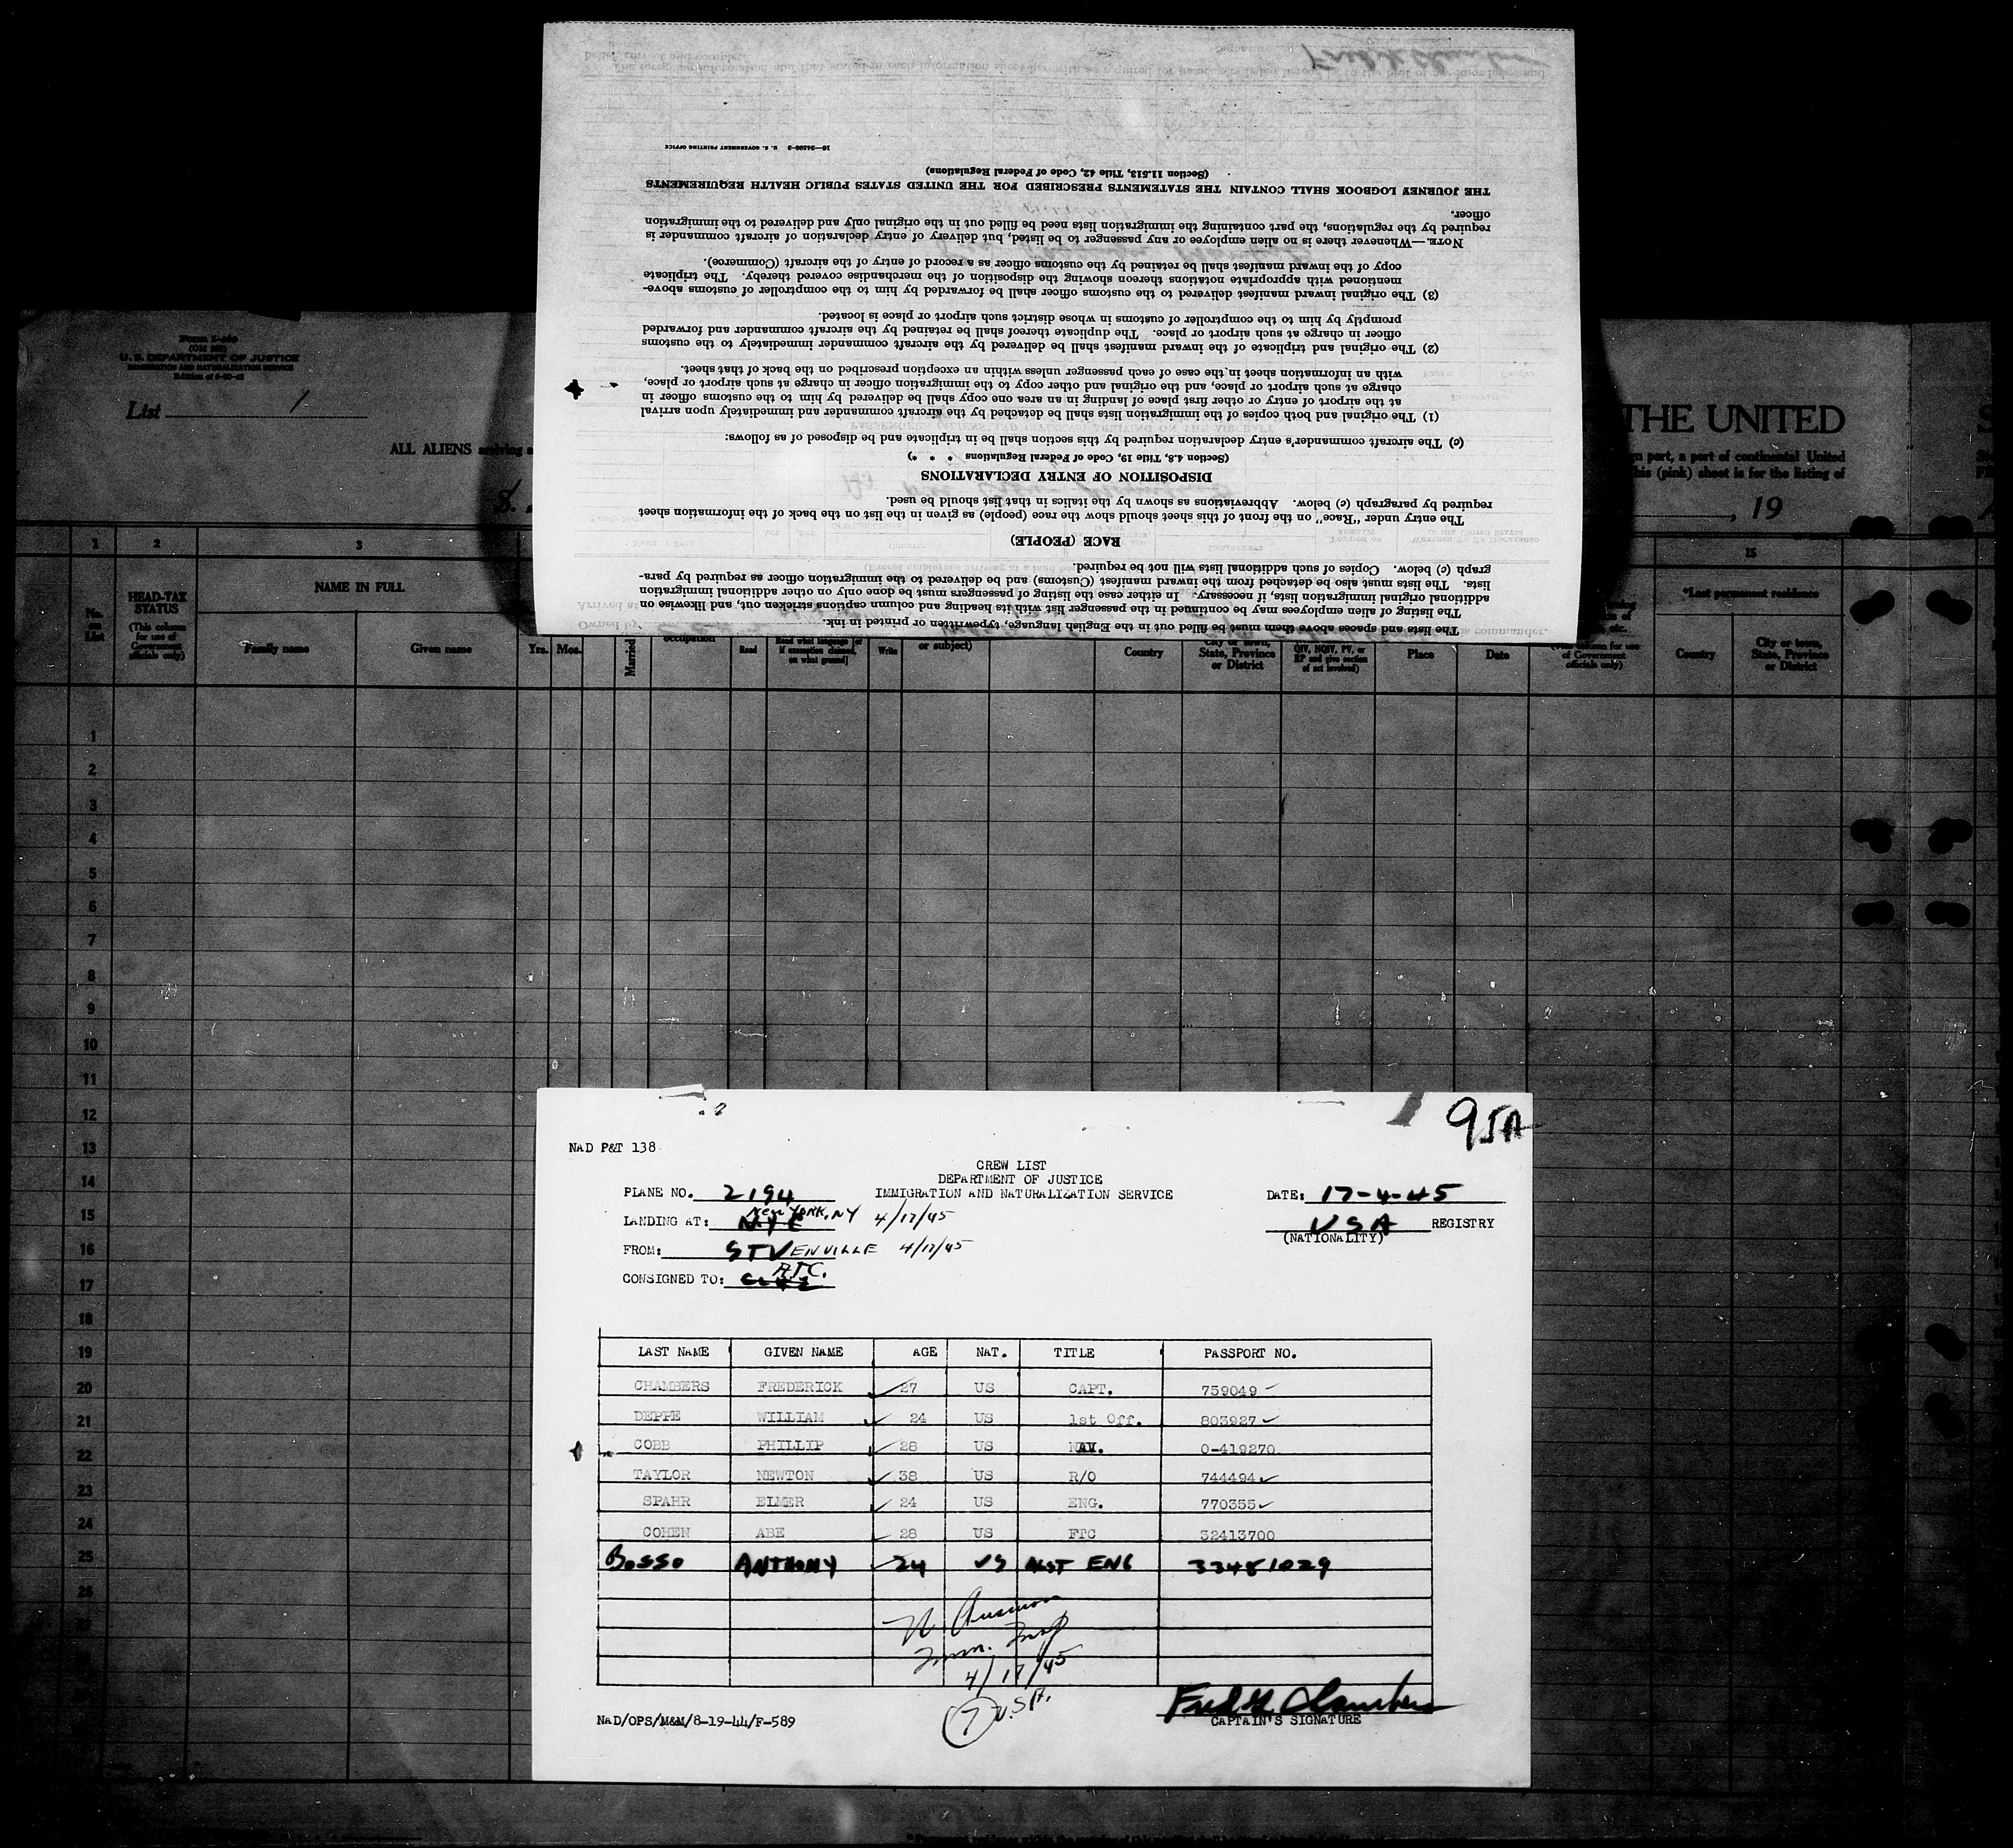 Form I-466
U. S. DEPARTMENT OF JUSTICE
IMMIGRATION AND NATURALIZATION SERVICE
List 1
ALL ALIENS arriving
THE UNITED
port, a part of continental United
his (pink) sheet is for the listing of
, 19
1 2 3 15
No. on List
HEAD-TAX STATUS
(This column for use of Government officials only)
NAME IN FULL
Family name
Given name
Yrs. Mos.
Married
occupation
Read
Read what language [or if exemption claimed, on what ground]
Write
or subject)
Country
City or town, State, Province or District
QIV, NQIV, PV, or RP and give section of act involved)
Place
Date
column for use of Government officials only)
*Last permanent residence
Country
City or town, State, Province or District
1
2
3
4
5
6
7
8
9
10
11
12
13
14
15
16
17
18
19
20
21
22
23
24
25
26
The lists and spaces above them must be filled out in the English language, typewritten or printed in ink.
The listing of alien employees may be continued in the passenger list with its heading and column captions stricken out, and likewise on
additional original immigration lists, if necessary. In either case the listing of passengers must be done only on other additional immigration
lists. The lists must also be detached from the inward manifest (Customs) and be delivered to the immigration officer as required by para-
graph (c) below. Copies of such additional lists will not be required.
RACE (PEOPLE)
The entry under "Race" on the front of this sheet should show the race (people) as given in the list on the back of the information sheet
required by paragraph (c) below. Abbreviations as shown by the italics in that list should be used.
DISPOSITION OF ENTRY DECLARATIONS
(Section 4.8, Title 19, Code of Federal Regulations * * *)
(c) The aircraft commander's entry declaration required by this section shall be in triplicate and be disposed of as follows:
(1) The original and both copies of the immigration lists shall be detached by the aircraft commander and immediately upon arrival
at the airport of entry or other first place of landing in an area one copy shall be delivered by him to the customs officer in
charge at such airport or place, and the original and other copy to the immigration officer in charge at such airport or place,
with an information sheet in the case of each passenger unless within an exception prescribed on the back of that sheet.
(2) The original and triplicate of the inward manifest shall be delivered by the aircraft commander immediately to the customs
officer in charge at such airport or place. The duplicate thereof shall be retained by the aircraft commander and forwarded
promptly by him to the comptroller of customs in whose district such airport or place is located.
(3) The original inward manifest delivered to the customs officer shall be forwarded by him to the comptroller of customs above-
mentioned with appropriate notations thereon showing the disposition of the merchandise covered thereby. The triplicate
copy of the inward manifest shall be retained by the customs officer as a record of entry of the aircraft (Commerce).
NOTE.—Whenever there is no alien employee or any passenger to be listed, but delivery of entry declaration of aircraft commander is
required by the regulations, the part containing the immigration lists need be filled out in the original only and delivered to the immigration
officer.
THE JOURNEY LOGBOOK SHALL CONTAIN THE STATEMENTS PRESCRIBED FOR THE UNITED STATES PUBLIC HEALTH REQUIREMENTS
(Section 11.513, Title 42, Code of Federal Regulations)
16—24598-3 U. S. GOVERNMENT PRINTING OFFICE
95A
NAD P&T 138
CREW LIST
DEPARTMENT OF JUSTICE
PLANE NO. 2194 IMMIGRATION AND NATURALIZATION SERVICE DATE: 17-4-45
LANDING AT: NYC New YORK, NY 4/17/45 USA REGISTRY
(NATIONALITY)
FROM: STVENVILLE 4/17/45
CONSIGNED TO: A.T.C.
LAST NAME GIVEN NAME AGE NAT. TITLE PASSPORT NO.
CHAMBERS FREDERICK 27 US CAPT. 759049
DEPPE WILLIAM 24 US 1st Off. 803927
COBB PHILLIP 28 US NAV. 0-419270
TAYLOR NEWTON 38 US R/O 744494
SPAHR ELMER 24 US ENG. 770355
COHEN ABE 28 US FTC 32413700
BOSSO ANTHONY 24 US ASST ENG 33481029
Imm. Insp
4/17/45
7 U.S.A.
Fred H. Chambers
CAPTAIN'S SIGNATURE
NAD/OPS/M&M/8-19-44/F-589